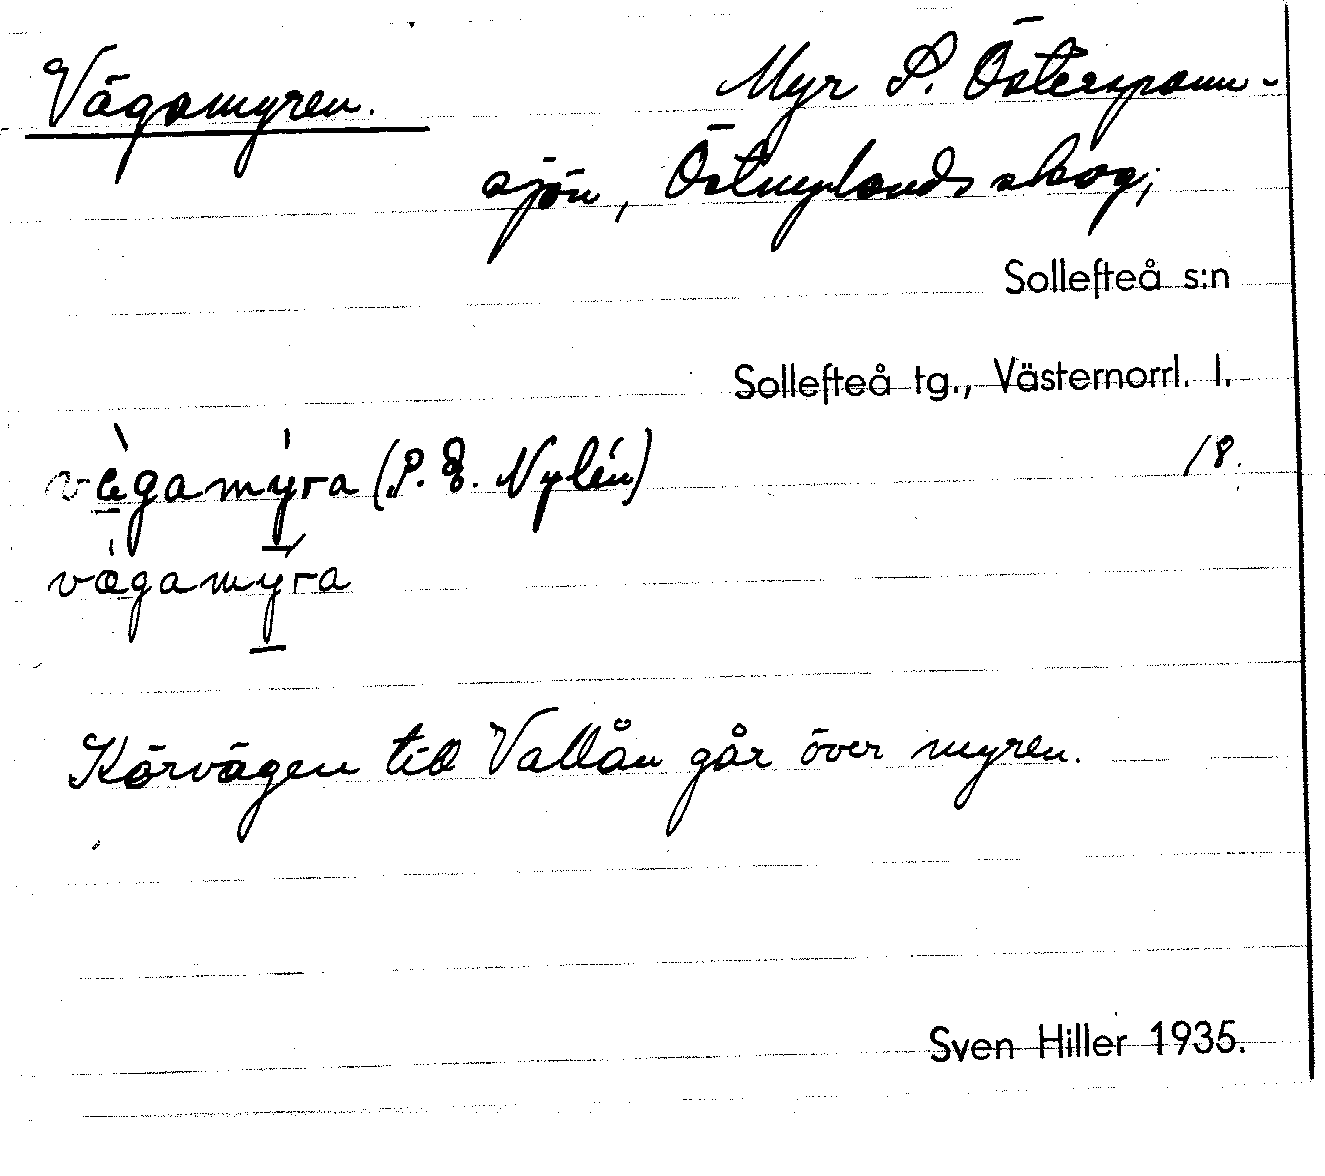 Vägamyren. Myr S. Österspann-
sjön, Östnylands skog;
Sollefteå s:n
Sollefteå tg., Västernorrl. l.
vègamýra (P. E. Nylén) 18.
vægamýra
Körvägen till Vallån går över myren.
Sven Hiller 1935.